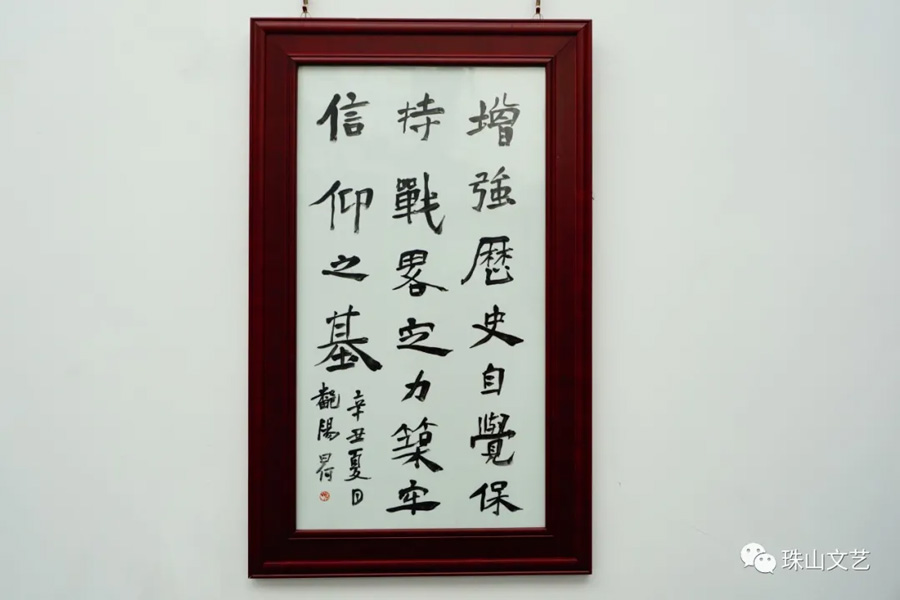 增強歷史自覺保
持戰畧定力築牢
信仰之基
辛丑夏日
陽
珠山文艺